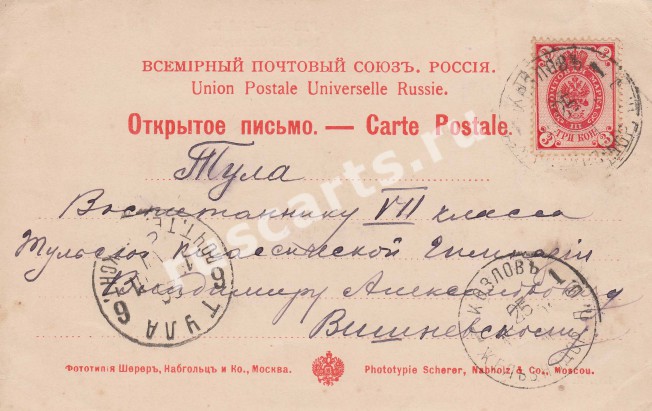 ВСЕМІРНЫЙ ПОЧТОВЫЙ СОЮЗЪ. РОССІЯ.
Union Postale Universelle Russie.
Открытое письмо. — Carte Postale.
ПОЧТОВАЯ МАРКА
3 ТРИ КОП. 3
Тула
Воспитаннику VII класса
Тульской классической Гимназіи
Владимиру Александровичу
Вишневскому
6 ТУЛА 6
КОЗЛОВЪ
Фототипія Шереръ, Набгольцъ и Ко., Москва.
Phototypie Scherer, Nabholz & Co., Moscou.
ruscarts.ru